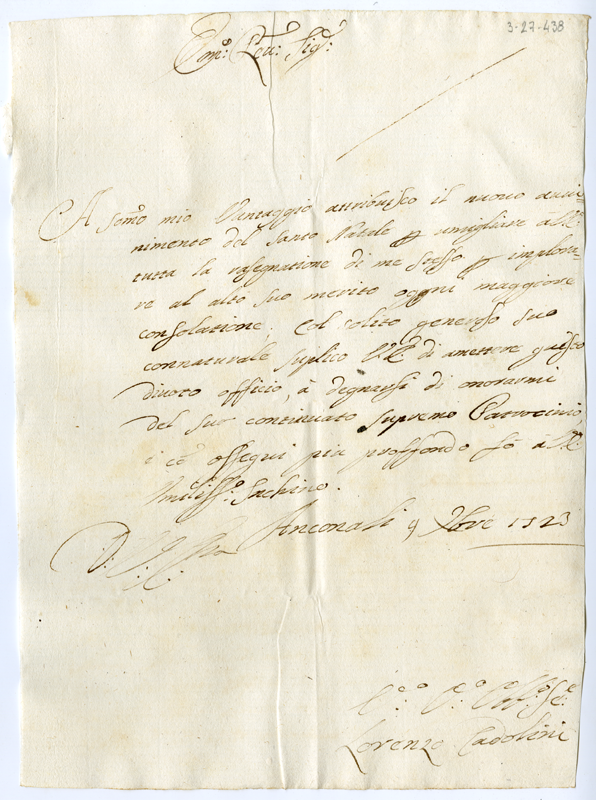 3-27-438
Em.o Sig.r
A som.o mio Vantaggio attribuisco il nuovo avve-
nimento del Santo Natale p umigliare a V.E.
tutta la rasegnatione di me stesso p implora-
re al alto suo merito ogni maggiore
consolatione; Col solito generoso suo
connaturale suplico V.E. di amettere questo
divoto officio, à degnarsi di onorarmi
del suo continuato supremo Patrocinio
i cō ossequi più proffondo fō a V.E.
Umiliss.o Inchino.
D. V. E. Ancona li 9 Xbre 1723
Lorenzo Cadolini